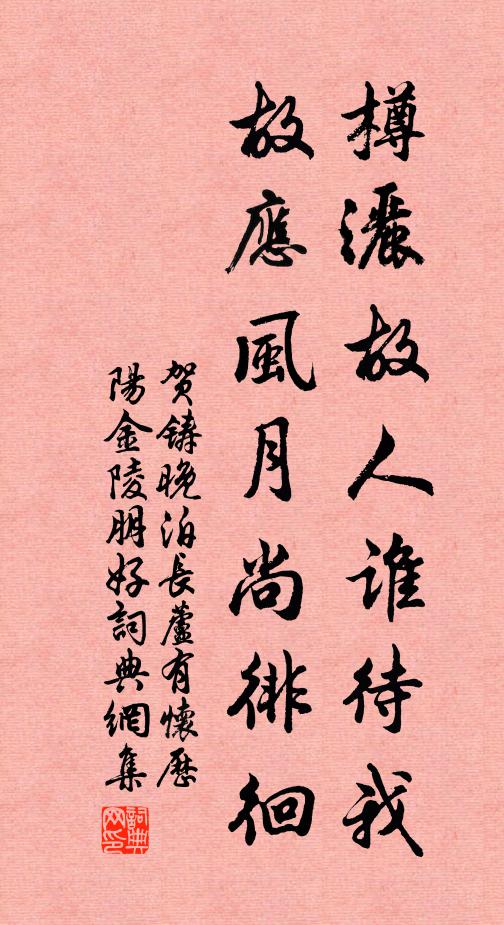 樽灑故人誰待我
故應風月尚徘徊
贺鑄晚泊長蘆有懷歷
陽金陵朋好詞典網集
詞典网印